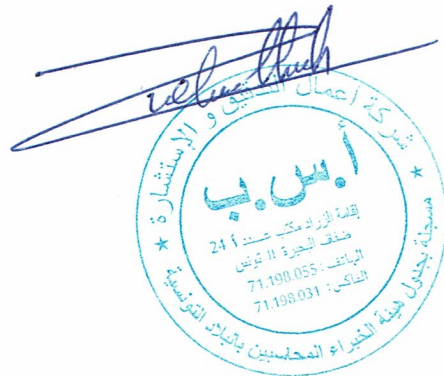 شركة أعمال التدقيق و الإستشارة
أ.س.ب
إقامة الزراد مكتب عـدد أ 24
ضفاف البحيرة II تونس
الهاتف : 71.198.055
الفاكس : 71.198.031
مسجلة بجدول هيئة الخبراء المحاسبين بالبلاد التونسية